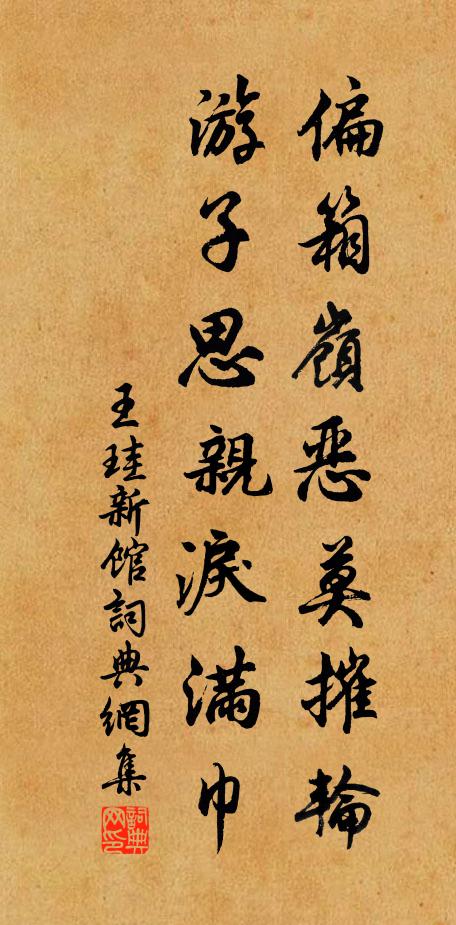 偏箱嶺恶莫摧輪
游子思親淚滿巾
王珪新館詞典網集
詞典网印